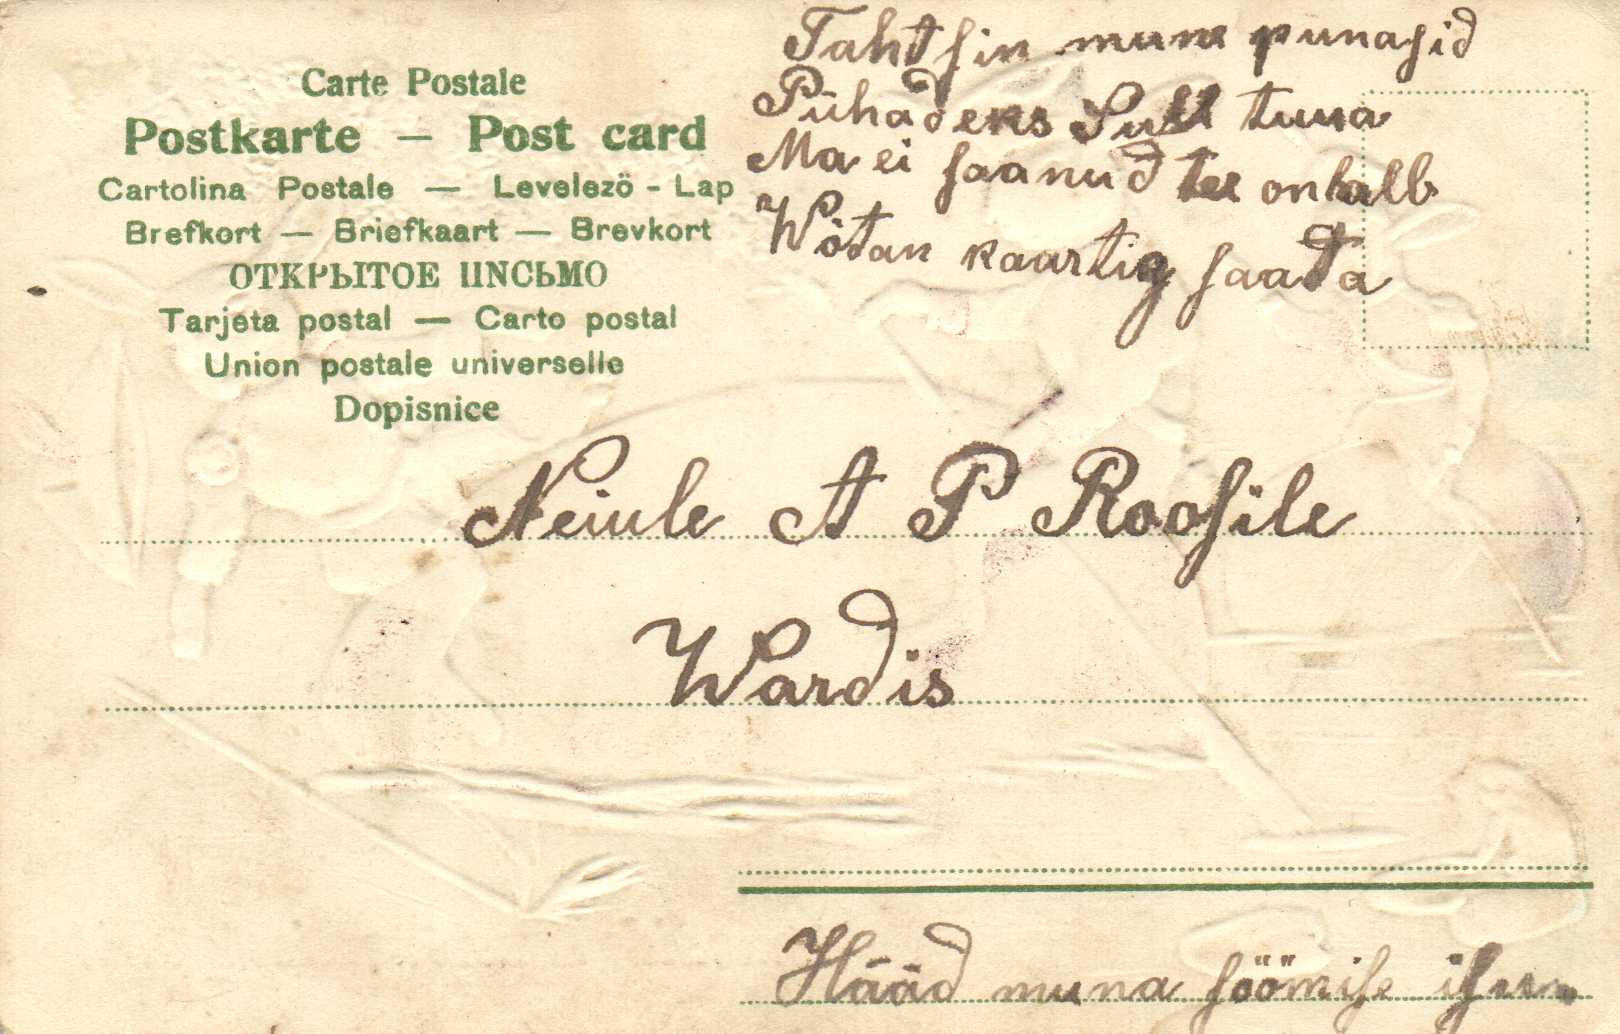 Carte Postale
Postkarte — Post card
Cartolina Postale — Levelezö - Lap
Brefkort — Briefkaart — Brevkort
ОТКРЫТОЕ ПИСЬМО
Tarjeta postal — Carto postal
Union postale universelle
Dopisnice
Tahtsin mune punasid
Pühadeks Sull tuua
Ma ei saanud tee on halb
Wõtan kaartig saata
Neiule A P Roosile
Wardis
Hääd muna söömise isu